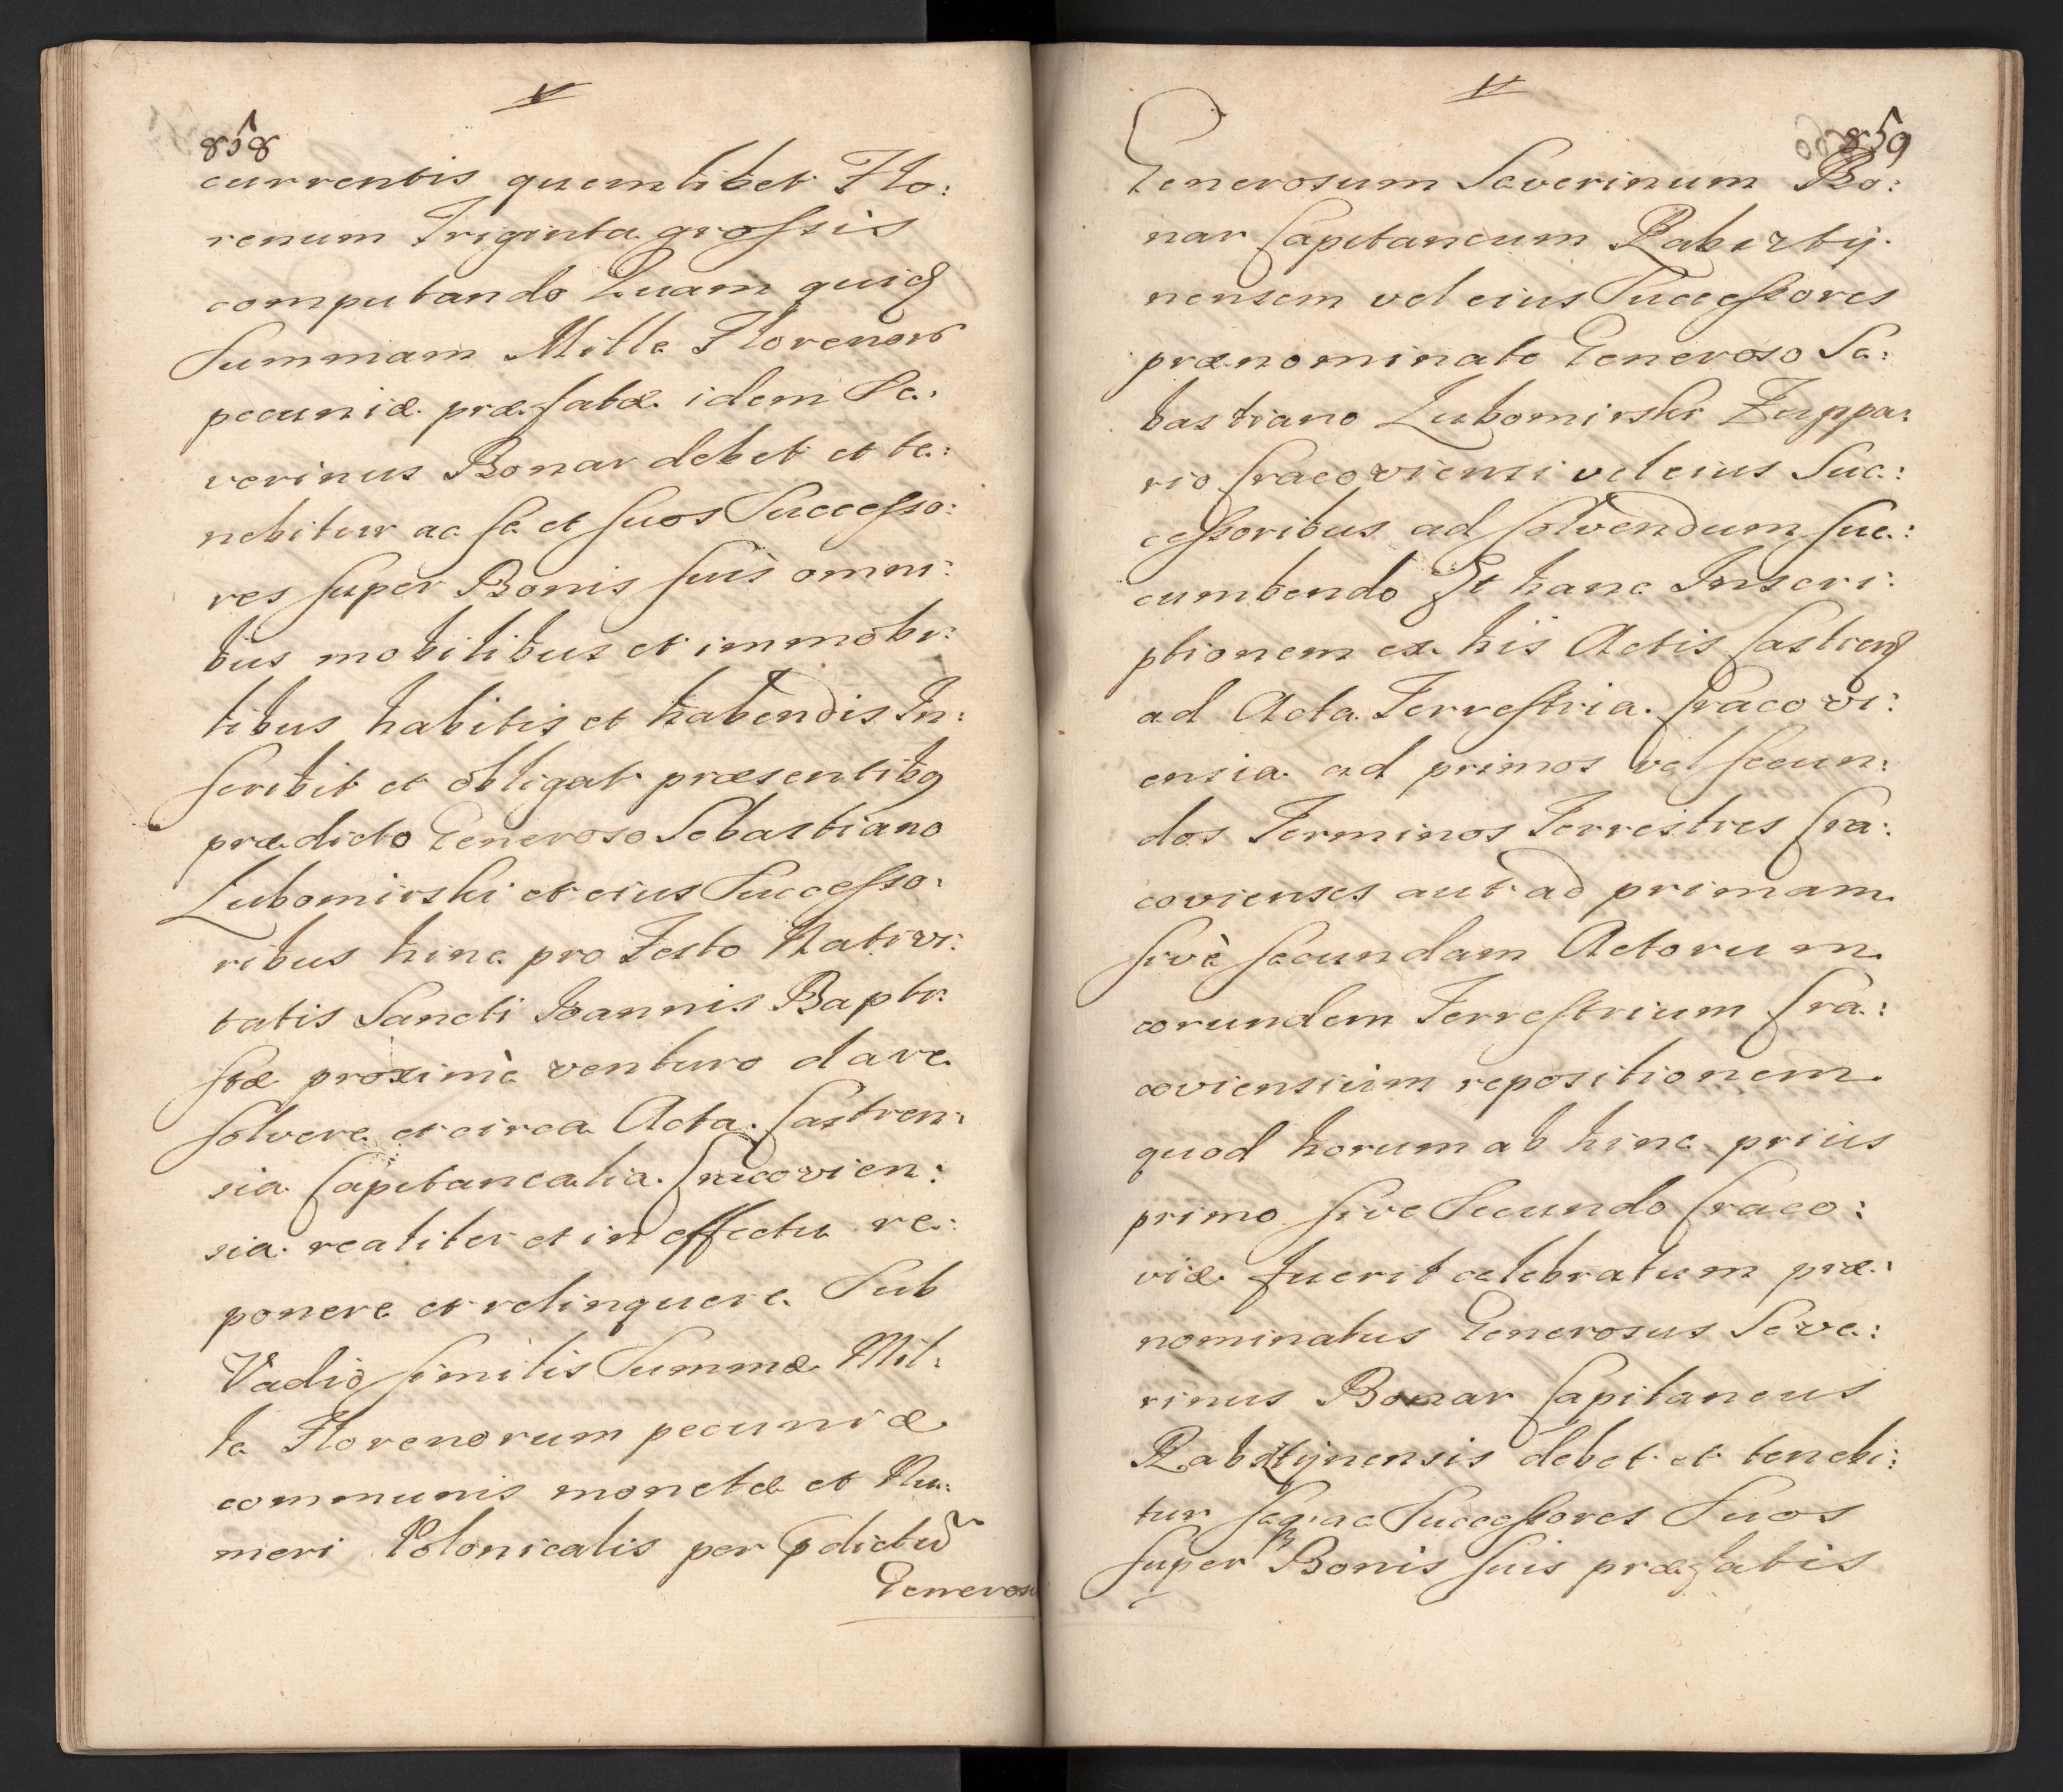 V
858
currentis quemlibet Flo:
renum Triginta grossis
computando Quam quidq
Summam Mille Florenorũ
pecuniæ præfatæ idem Se:
verinus Bonar debet et te:
nebitur ac se et suos Successo:
res super Bonis suis omni:
bus mobilibus et immobi:
libus habitis et habendis In:
scribit et obligat præsentibq
prædicto Generoso Sebastiano
Lubomirski et eius Successo:
ribus hinc pro Festo Nativi:
tatis Sancti Joannis Bapti:
stæ proximè venturo dare
solvere et circa Acta Castren:
sia Capitanealia Cracovien:
sia realiter et in effectu re:
ponere et relinquere Sub
Vadio similis Summæ Mil:
le Florenorum pecuniæ
communis monetæ et Nu:
meri Polonicalis per pdictũ
Generosu
V
859
Generosum Severinum Bo:
nar Capitaneum Rabszty:
nensem vel eius Successores
prænominato Generoso Se:
bastiano Lubomirski Zuppa:
rio Cracoviensi vel eius Suc:
cessoribus ad solvendum suc:
cumbendo Et hanc Inscri:
ptionem ex his Actis Castrenq
ad Acta Terrestria Cracovi:
ensia ad primos vel secun:
dos Terminos Terrestres Cra:
covienses aut ad primam
sivè secundam Actorum
eorundem Terrestrium Cra:
coviensium repositionem
quod horum ab hinc prius
primo sive Secundo Craco:
viæ fuerit celebratum præ:
nominatus Generosus Seve:
rinus Bonar Capitaneus
Rabsztynensis debet et tenebi:
tur seq ac Successores Suos
super Bonis suis præfatis